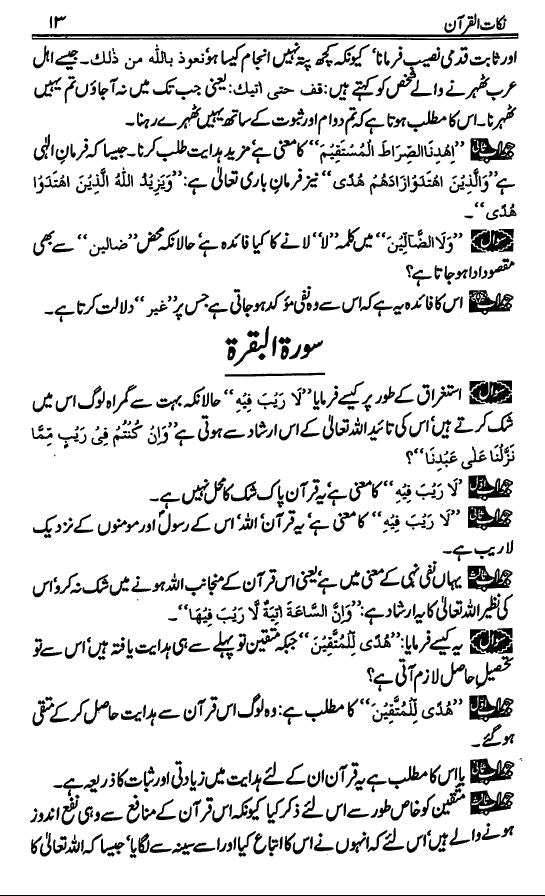 نکات القرآن ۱۳
اور ثابت قدمی نصیب فرمانا‘ کیونکہ کچھ پتہ نہیں انجام کیسا ہو‘ نعوذ باللہ من ذلك۔ جیسے اہل
عرب ٹھہرنے والے شخص کو کہتے ہیں: قف حتی اتیك: یعنی جب تک میں نہ آجاؤں تم یہیں
ٹھہرنا۔ اس کا مطلب ہوتا ہے کہ تم دوام اور ثبوت کے ساتھ یہیں ٹھہرے رہنا۔
جواب ثانی ’’اِهْدِنَا الصِّرَاطَ الْمُسْتَقِيْمَ‘‘ کا معنی ہے‘ مزید ہدایت طلب کرنا۔ جیسا کہ فرمانِ الٰہی
ہے ’’وَالَّذِيْنَ اهْتَدَوْا زَادَهُمْ هُدًى‘‘ نیز فرمانِ باری تعالیٰ ہے: ’’وَيَزِيْدُ اللّٰهُ الَّذِيْنَ اهْتَدَوْا
هُدًى‘‘۔
سوال ’’وَلَا الضَّآلِّيْنَ‘‘ میں کلمہ ’’لا‘‘ لانے کا کیا فائدہ ہے‘ حالانکہ محض ’’ضالین‘‘ سے بھی
مقصود ادا ہو جاتا ہے؟
جواب اس کا فائدہ یہ ہے کہ اس سے وہ نفی مؤکد ہو جاتی ہے جس پر ’’غیر‘‘ دلالت کرتا ہے۔
سورة البقرة
سوال استغراق کے طور پر کیسے فرمایا ’’لَا رَيْبَ فِيْهِ‘‘ حالانکہ بہت سے گمراہ لوگ اس میں
شک کرتے ہیں‘ اس کی تائید اللہ تعالیٰ کے اس ارشاد سے ہوتی ہے ’’وَاِنْ كُنْتُمْ فِيْ رَيْبٍ مِّمَّا
نَزَّلْنَا عَلٰى عَبْدِنَا‘‘؟
جواب اوّل ’’لَا رَيْبَ فِيْهِ‘‘ کا معنی ہے‘ یہ قرآن پاک شک کا محل نہیں ہے۔
جواب ثانی ’’لَا رَيْبَ فِيْهِ‘‘ کا معنی ہے‘ یہ قرآن‘ اللہ‘ اس کے رسولؐ اور مومنوں کے نزدیک
لاریب ہے۔
جواب ثالث یہاں نفی نہی کے معنی میں ہے‘ یعنی اس قرآن کے منجانب اللہ ہونے میں شک نہ کرو‘ اس
کی نظیر اللہ تعالیٰ کا یہ ارشاد ہے: ’’وَاِنَّ السَّاعَةَ اٰتِيَةٌ لَّا رَيْبَ فِيْهَا‘‘۔
سوال یہ کیسے فرمایا: ’’هُدًى لِّلْمُتَّقِيْنَ‘‘ جبکہ متقین تو پہلے سے ہی ہدایت یافتہ ہیں‘ اس سے تو
تحصیلِ حاصل لازم آتی ہے؟
جواب اوّل ’’هُدًى لِّلْمُتَّقِيْنَ‘‘ کا مطلب ہے: وہ لوگ اس قرآن سے ہدایت حاصل کر کے متقی
ہو گئے۔
جواب ثانی یا اس کا مطلب ہے یہ قرآن ان کے لئے ہدایت میں زیادتی اور ثبات کا ذریعہ ہے۔
جواب ثالث متقین کو خاص طور سے اس لئے ذکر کیا کیونکہ اس قرآن کے منافع سے وہی نفع اندوز
ہونے والے ہیں‘ اس لئے کہ انہوں نے اس کا اتباع کیا اور اسے سینہ سے لگایا‘ جیسا کہ اللہ تعالیٰ کا